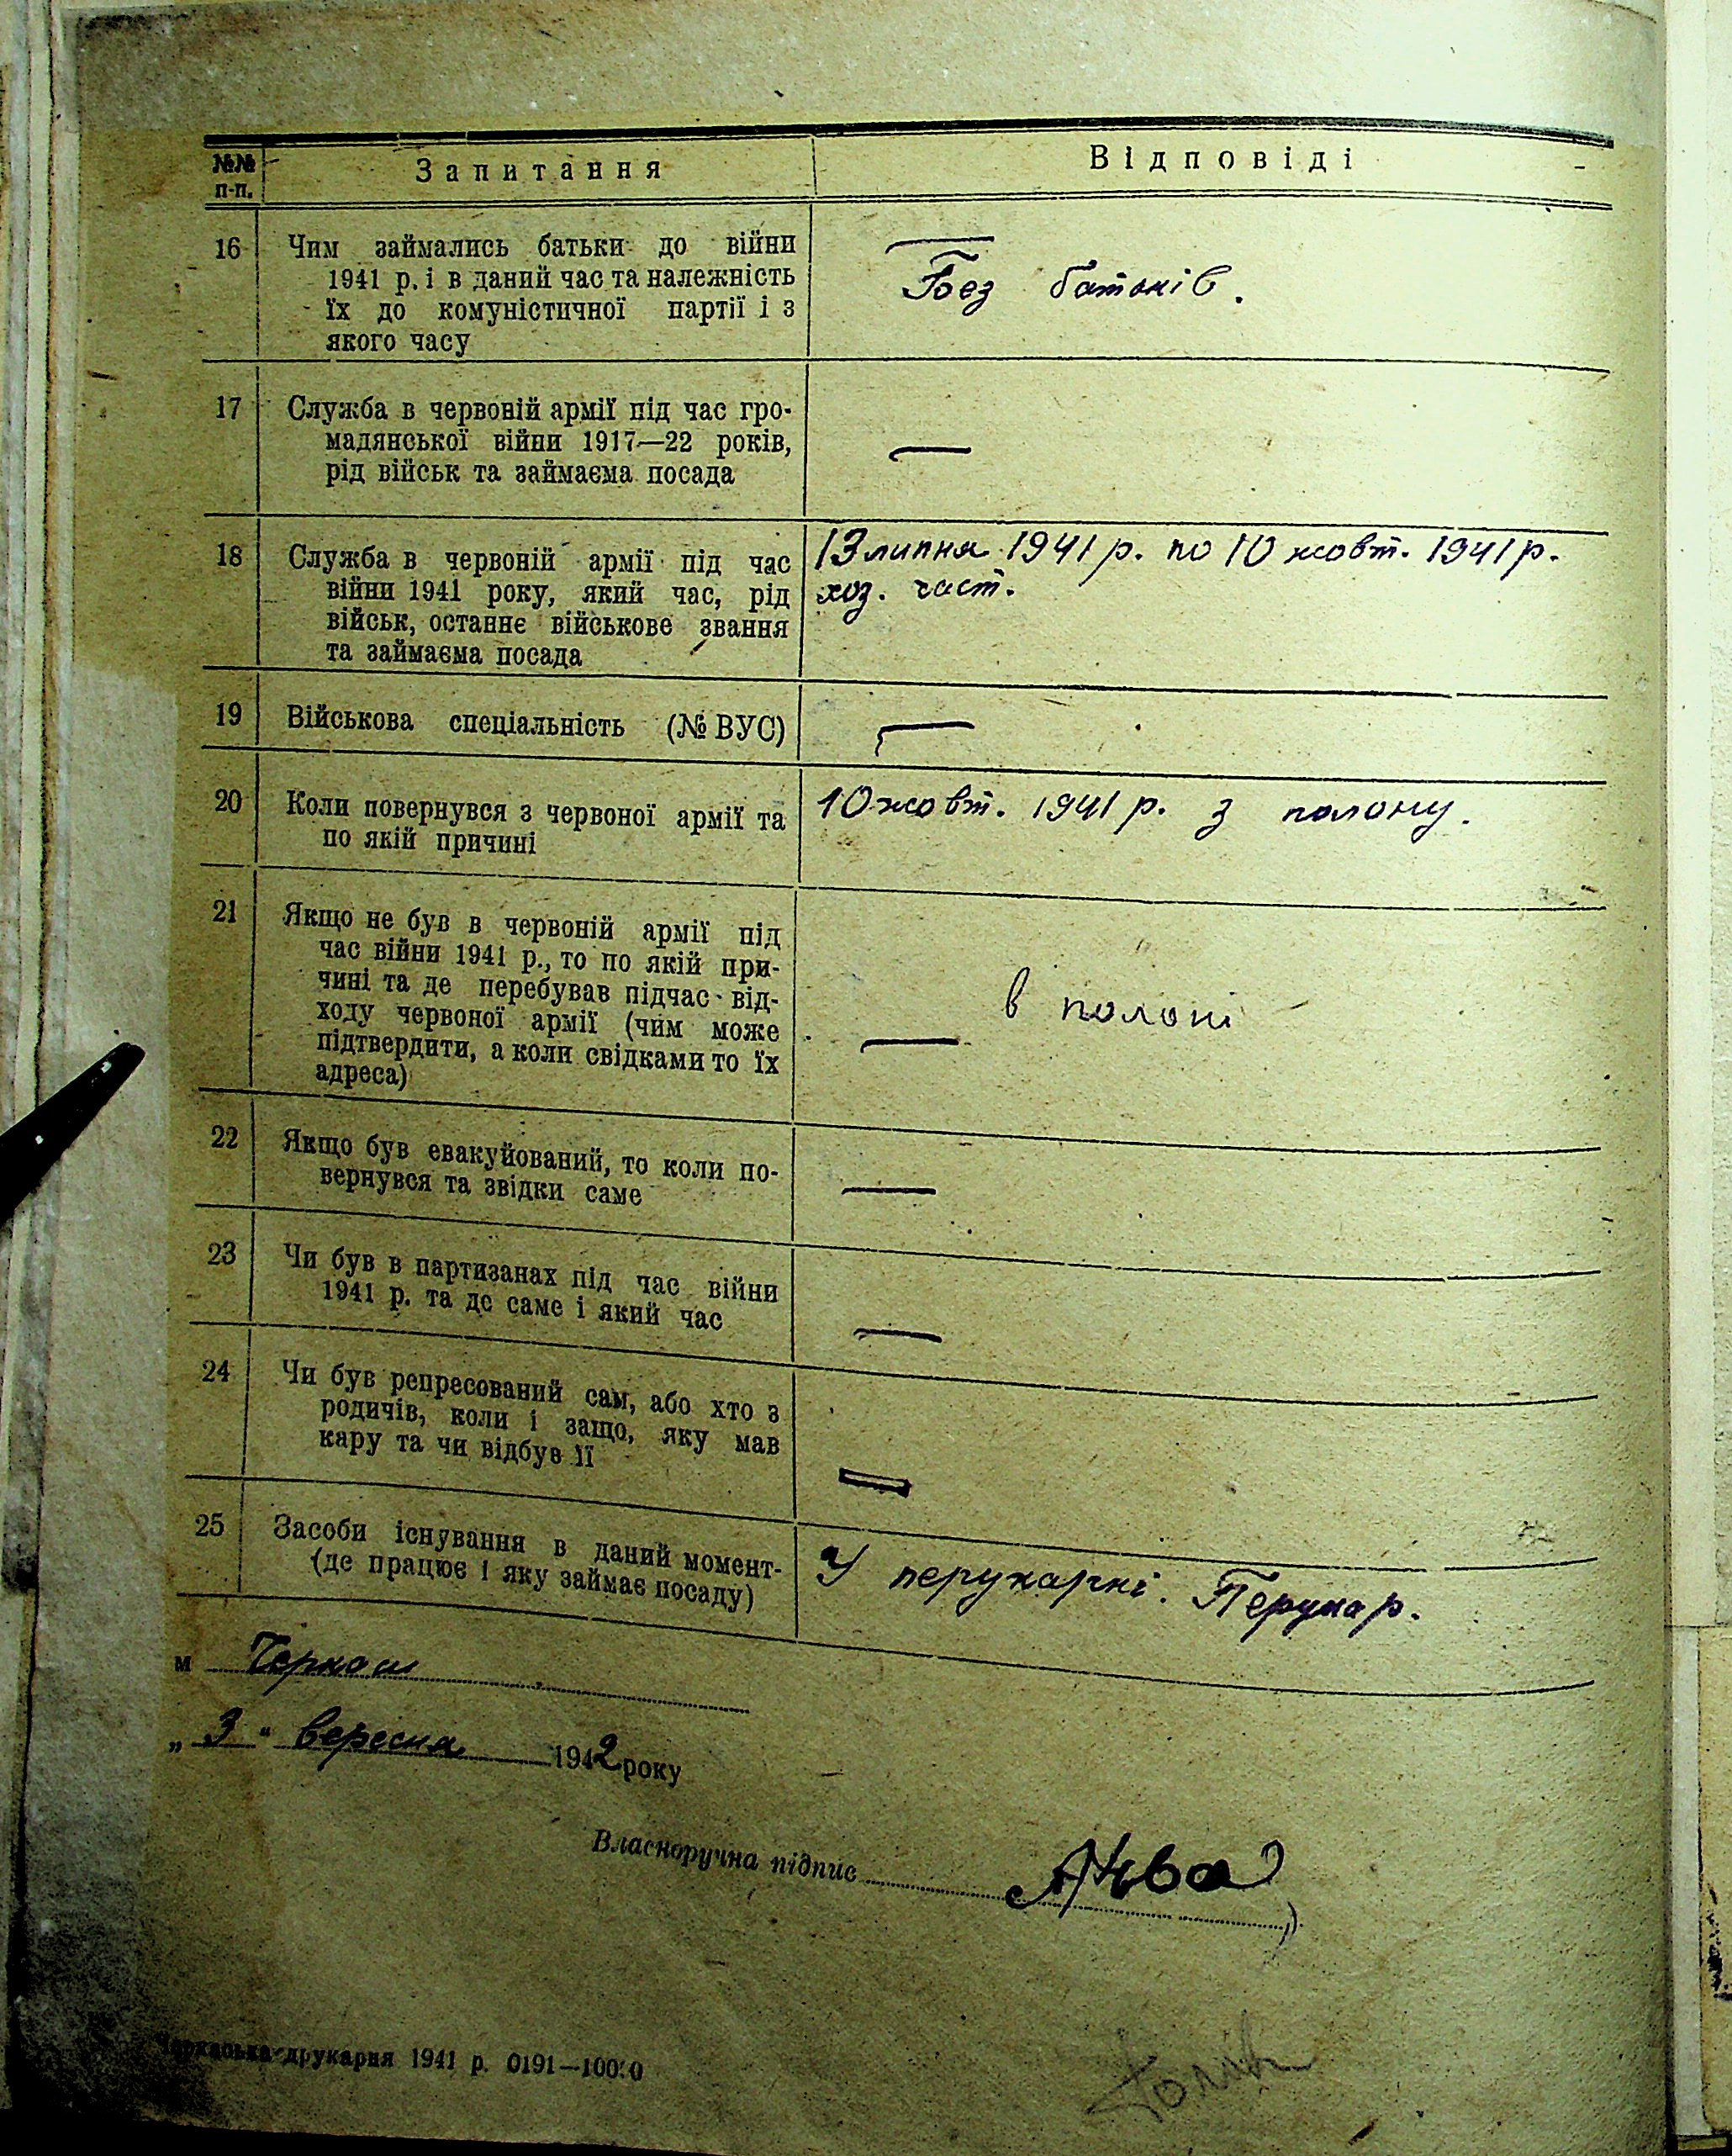 №№
п-п.
Запитання
Відповіді
16
Чим займались батьки до війни
1941 р. і в даний час та належність
їх до комуністичної партії і з
якого часу
Без батьків.
17
Служба в червоній армії під час гро-
мадянської війни 1917—22 років,
рід військ та займаєма посада
—
18
Служба в червоній армії під час
війни 1941 року, який час, рід
військ, останнє військове звання
та займаєма посада
13 липня 1941 р. по 10 жовт. 1941 р.
хоз. част.
19
Військова спеціальність (№ ВУС)
—
20
Коли повернувся з червоної армії та
по якій причині
10 жовт. 1941 р. з полону.
21
Якщо не був в червоній армії під
час війни 1941 р., то по якій при-
чині та де перебував підчас від-
ходу червоної армії (чим може
підтвердити, а коли свідками то їх
адреса)
— в полоні
22
Якщо був евакуйований, то коли по-
вернувся та звідки саме
—
23
Чи був в партизанах під час війни
1941 р. та де саме і який час
—
24
Чи був репресований сам, або хто з
родичів, коли і защо, яку мав
кару та чи відбув її
—
25
Засоби існування в даний момент-
(де працює і яку займає посаду)
У перукарні. Перукар.
м Черкаси
„ 3 " вересня 1942 року
Власноручна підпис
Черкаська друкарня 1941 р. 0191—10000